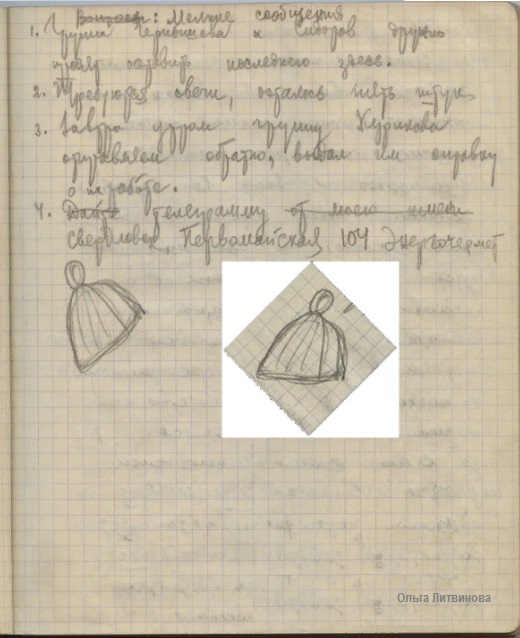 Вопросы: Мелкие сообщения
1. Группа Чернышева и Сидоров дружно
просят оставить последнего здесь.
2. Требуются свечи, осталось пять штук.
3. Завтра утром группу Курикова
отправляем обратно, выдал им справку
о их работе.
4. Дайте телеграмму от моего имени
Свердловск, Первомайская 104 Энергочермет
Ольга Литвинова